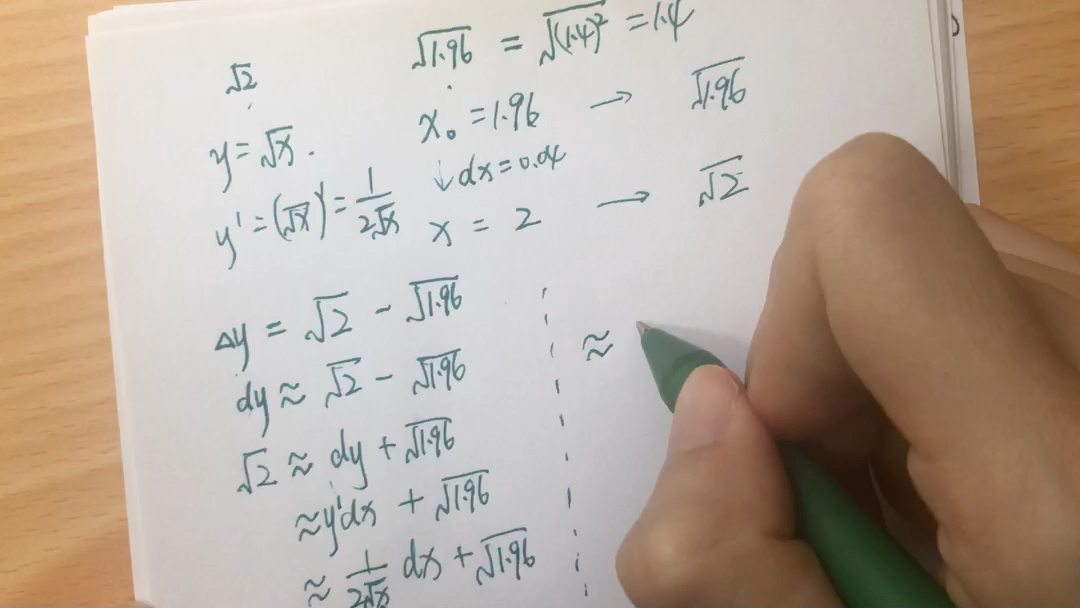 √1.96 = √(1.4)² = 1.4
√2
x₀ = 1.96 → √1.96
y = √x.
↓ dx = 0.04
y' = (√x)' = 1/(2√x)
x = 2 → √2
Δy = √2 - √1.96
dy ≈ √2 - √1.96
√2 ≈ dy + √1.96
≈ y'dx + √1.96
≈ 1/(2√x) dx + √1.96
≈